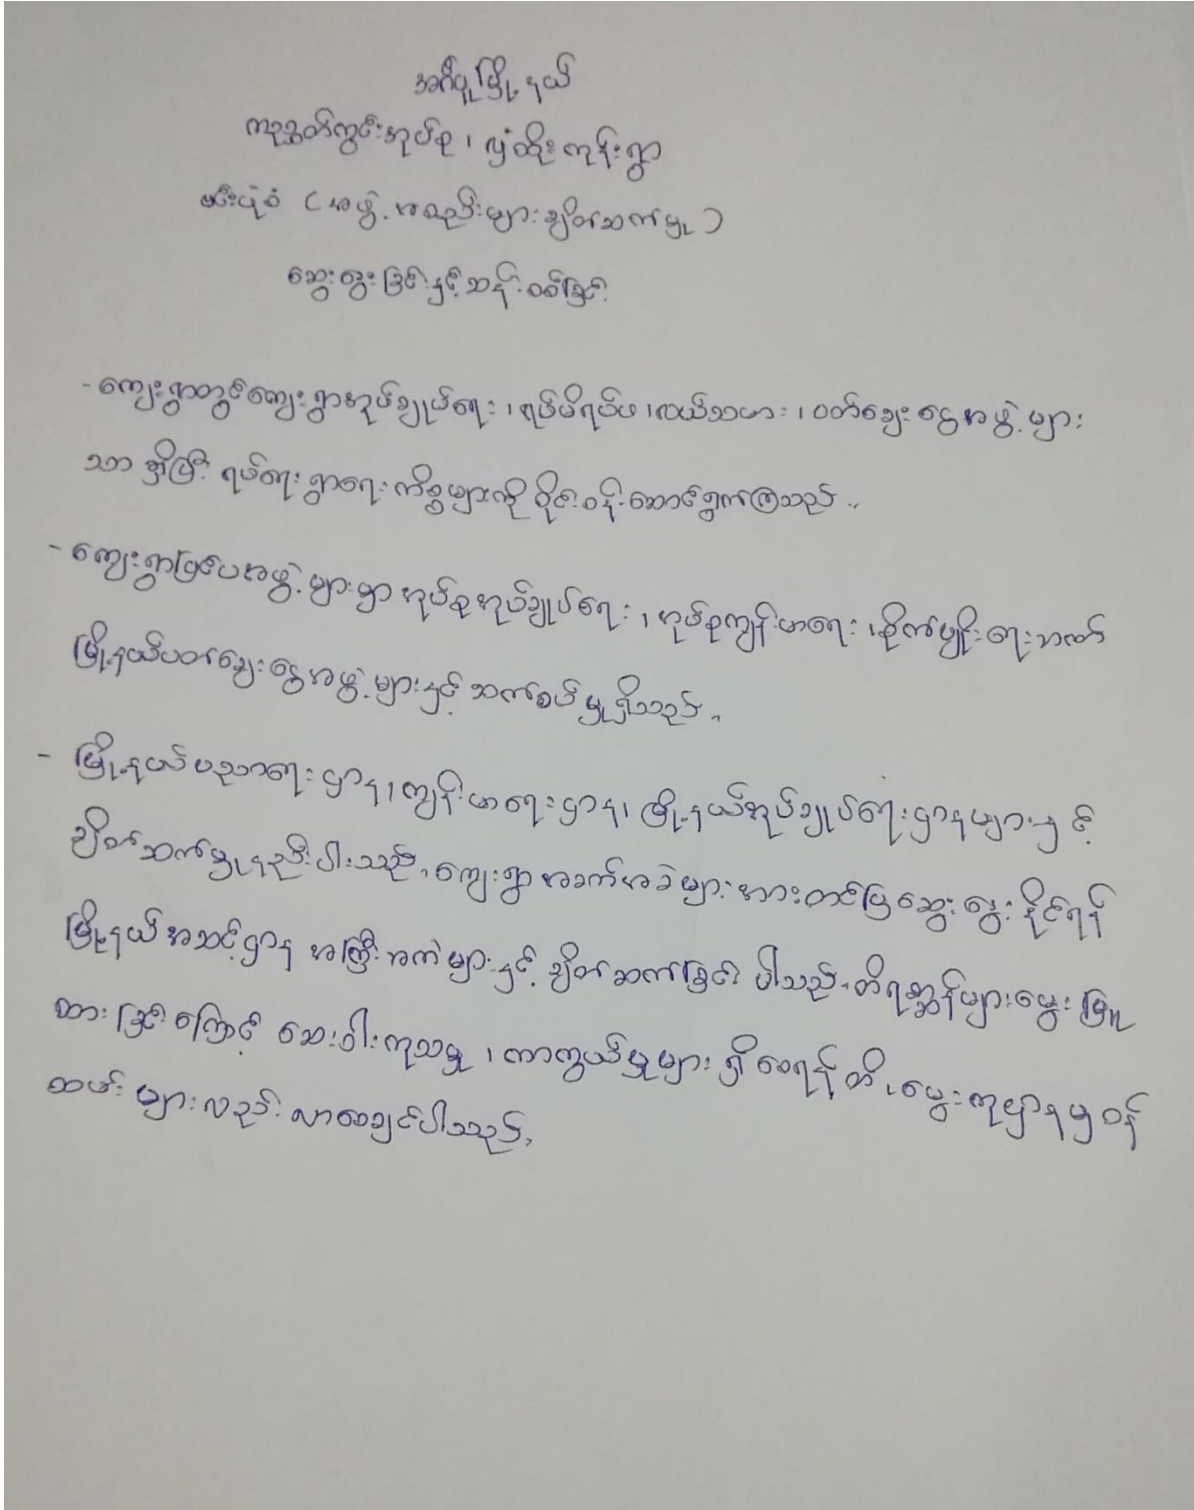 အင်္ဂပူမြို့နယ်
ကညွတ်ကွင်းအုပ်စု၊ လှံထိုးကုန်းရွာ
ဗင်းပုံစံ (အဖွဲ့အစည်းများချိတ်ဆက်မှု)
ဆွေးနွေးခြင်းနှင့်သန်းစစ်ခြင်း
- ကျေးရွာတွင်ကျေးရွာအုပ်ချုပ်ရေး၊ ရပ်မိရပ်ဖ၊ လယ်သမား၊ ဝတ်ချေးငွေအဖွဲ့များ
သာ ရှိပြီး ရပ်ရေးရွာရေးကိစ္စများကို ဝိုင်းဝန်းဆောင်ရွက်ကြသည်။
- ကျေးရွာပြင်ပအဖွဲ့များမှာ အုပ်စုအုပ်ချုပ်ရေး၊ အုပ်စုကျန်းမာရေး၊ စိုက်ပျိုးရေးဘဏ်
မြို့နယ်ပတ်ချေးငွေအဖွဲ့များနှင့် ဆက်စပ်မှုရှိသည်။
- မြို့နယ်ပညာရေးဌာန၊ ကျန်းမာရေးဌာန၊ မြို့နယ်အုပ်ချုပ်ရေးဌာနများနှင့်
ချိတ်ဆက်မှုနည်းပါးသည်၊ ကျေးရွာအခက်အခဲများအားတင်ပြဆွေးနွေးနိုင်ရန်
မြို့နယ်အဆင့်ဌာန အကြီးအကဲများနှင့် ချိတ်ဆက်ခြင်ပါသည်၊ တိရစ္ဆာန်များမွေးမြူ
ထားခြင်းကြောင့် ဆေးဝါးကုသမှု၊ ကာကွယ်မှုများ ရှိစေရန် တိ၊ မွေးကုဌာနမှဝန်
ထမ်းများလည်း လာစေချင်ပါသည်၊